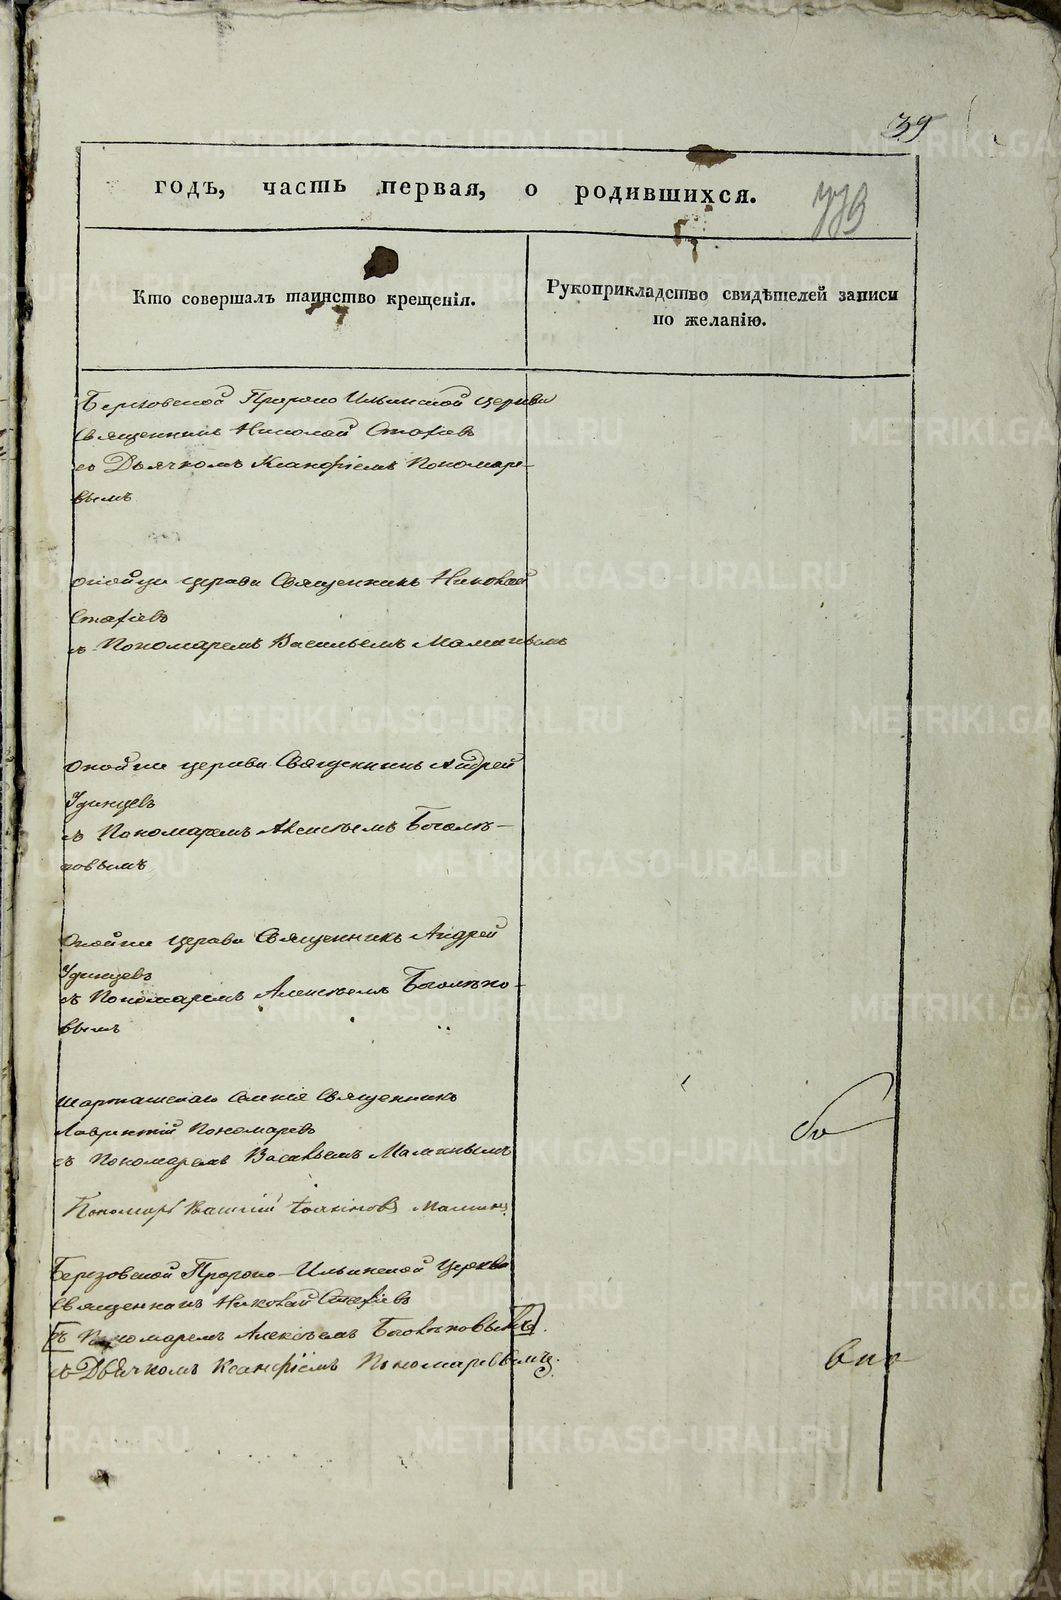 39
годъ, часть первая, о родившихся.
Кто совершалъ таинство крещенія.
Рукоприкладство свидѣтелей записи
по желанію.
Березовской Пророко Ильинской церкви
Священникъ Николай Стафіевъ
съ Дьячкомъ Ксанфіемъ Пономаре-
вымъ
оной же церкви Священникъ Николай
Стафіевъ
съ Пономаремъ Васильемъ Маминымъ
Оной же церкви Священникъ Андрей
Удинцевъ
съ Пономаремъ Алексѣемъ Боголѣ-
повымъ
Оной же церкви Священникъ Андрей
Удинцевъ
съ Пономаремъ Алексѣемъ Боголѣпо-
вымъ
Шарташскаго Священникъ
Лаврентій Пономаревъ
съ Пономаремъ Васильемъ Маминымъ
Пономарь Василій Маминъ
Березовской Пророко-Ильинской Церкви
Священникъ Николай Стафіевъ
съ Пономаремъ Алексѣемъ Боголѣповымъ
съ Дьячкомъ Ксанфіемъ Пономаревымъ.
METRIKI.GASO-URAL.RU